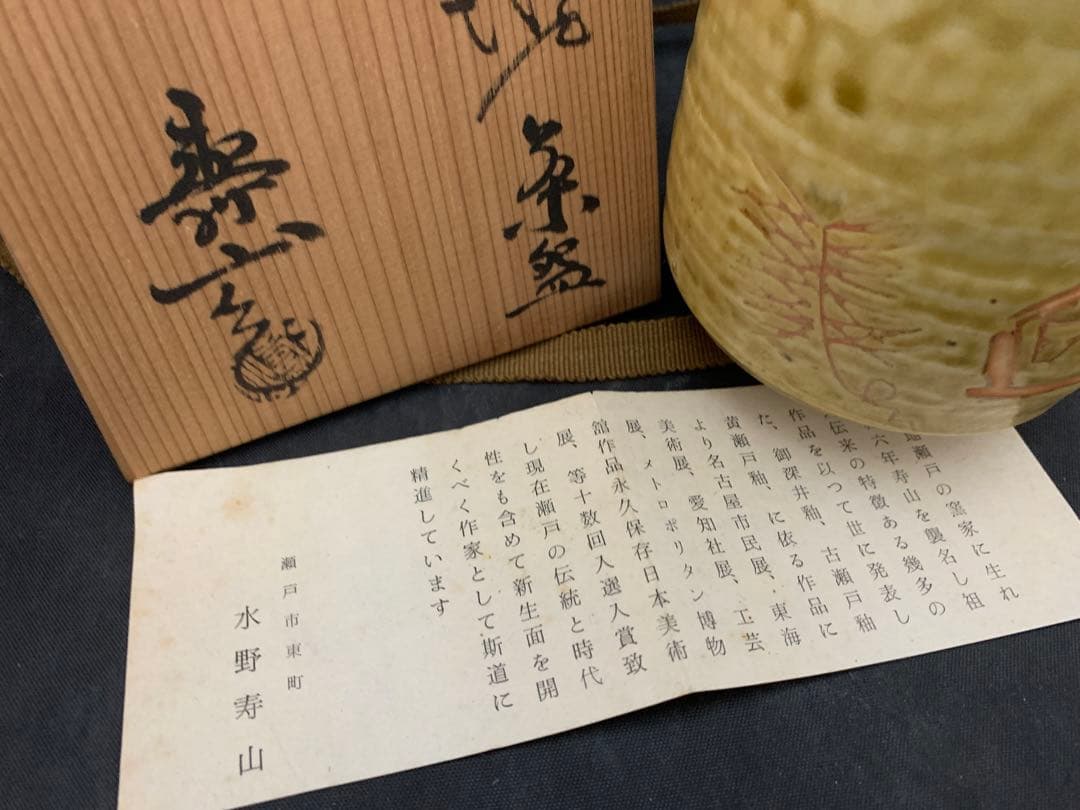 茶盌
瀬戸の窯家に生れ
六年寿山を襲名し祖
伝来の特徴ある幾多の
作品を以つて世に発表し
た、御深井釉、古瀬戸釉
黄瀬戸釉、に依る作品に
より名古屋市民展、東海
美術展、愛知社展、工芸
展、メトロポリタン博物
舘作品永久保存日本美術
展、等十数回入選入賞致
し現在瀬戸の伝統と時代
性をも含めて新生面を開
くべく作家として斯道に
精進しています
瀬戸市東町
水野寿山